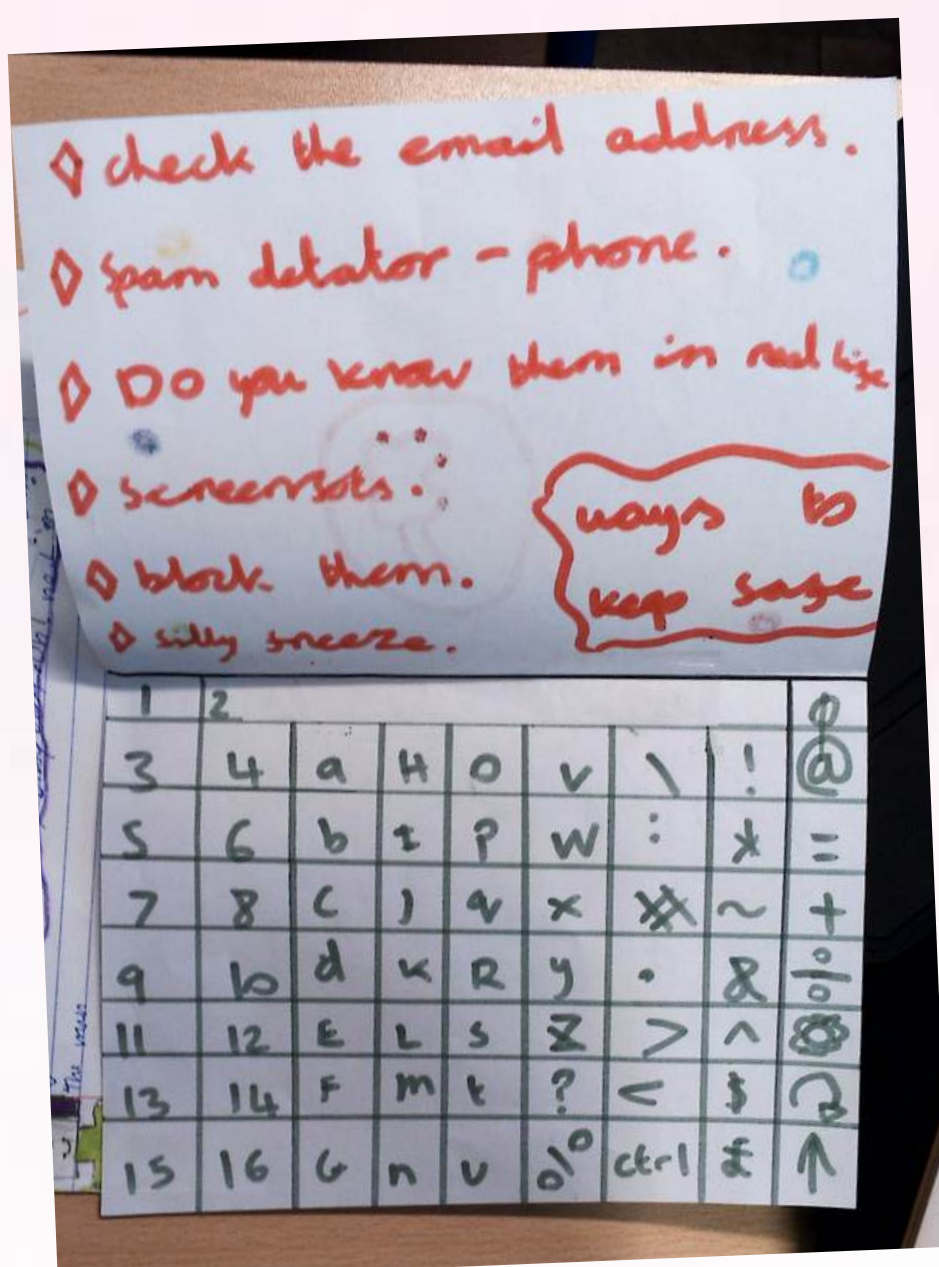 ◊ check the email address.
◊ spam detator - phone.
◊ Do you know them in real life
◊ screensots.
◊ block them.
◊ silly sneeze.
ways to
keep safe
1 2
3 4 a H O v \ ! @
5 6 b I P W : * =
7 8 C J q x # ~ +
9 10 d K R y . & ÷
11 12 E L S Z > ^
13 14 F m t ? < $
15 16 G n U % ctrl £ ↑
The